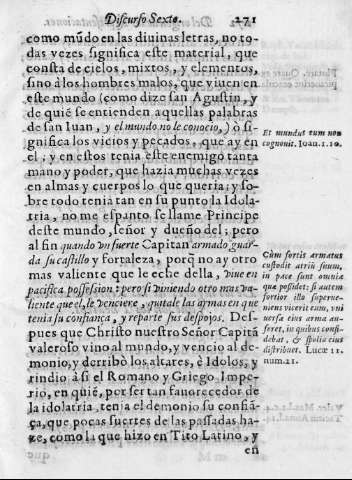 Discurso Sexto. 271
como mũdo en las diuinas letras, no to-
das vezes significa este material, que
consta de cielos, mixtos, y elementos,
sino à los hombres malos, que viuen en
este mundo (como dize san Agustin, y
de quiẽ se entienden aquellas palabras
de san Iuan, y el mundo no le conocio,) ò si-
gnifica los vicios y pecados, que ay en
el; y en estos tenia este enemigo tanta
mano y poder, que hazia muchas vezes
en almas y cuerpos lo que queria; y so-
bre todo tenia tan en su punto la Idola-
tria, no me espanto se llame Principe
deste mundo, señor y dueño del; pero
al fin quando vn fuerte Capitan armado guar-
da su castillo y fortaleza, porq̃ no ay otro
mas valiente que le eche della, viue en
pacifica possession: pero si viniendo otro mas va-
liente que el, le venciere, quitale las armas en que
tenia su confiança, y reparte sus despojos. Des-
pues que Christo nuestro Señor Capitã
valeroso vino al mundo, y vencio al de-
monio, y derribò los altares, è Idolos, y
rindio à si el Romano y Griego Impe-
rio, en quiẽ, por ser tan fauorecedor de
la idolatria, tenia el demonio su confiã-
ça, que pocas suertes de las passadas ha-
ze, como la que hizo en Tito Latino, y
en
Et mundus eum non
cognouit. Ioan.1.10.
Cùm fortis armatus
custodit atriũ suum,
in pace sunt omnia
quæ possidet; si autem
fortior illo superue-
niens vicerit eum, vni
uersa eius arma au-
feret, in quibus confi-
debat, & spolia eius
distribuet. Lucæ 11.
num.21.